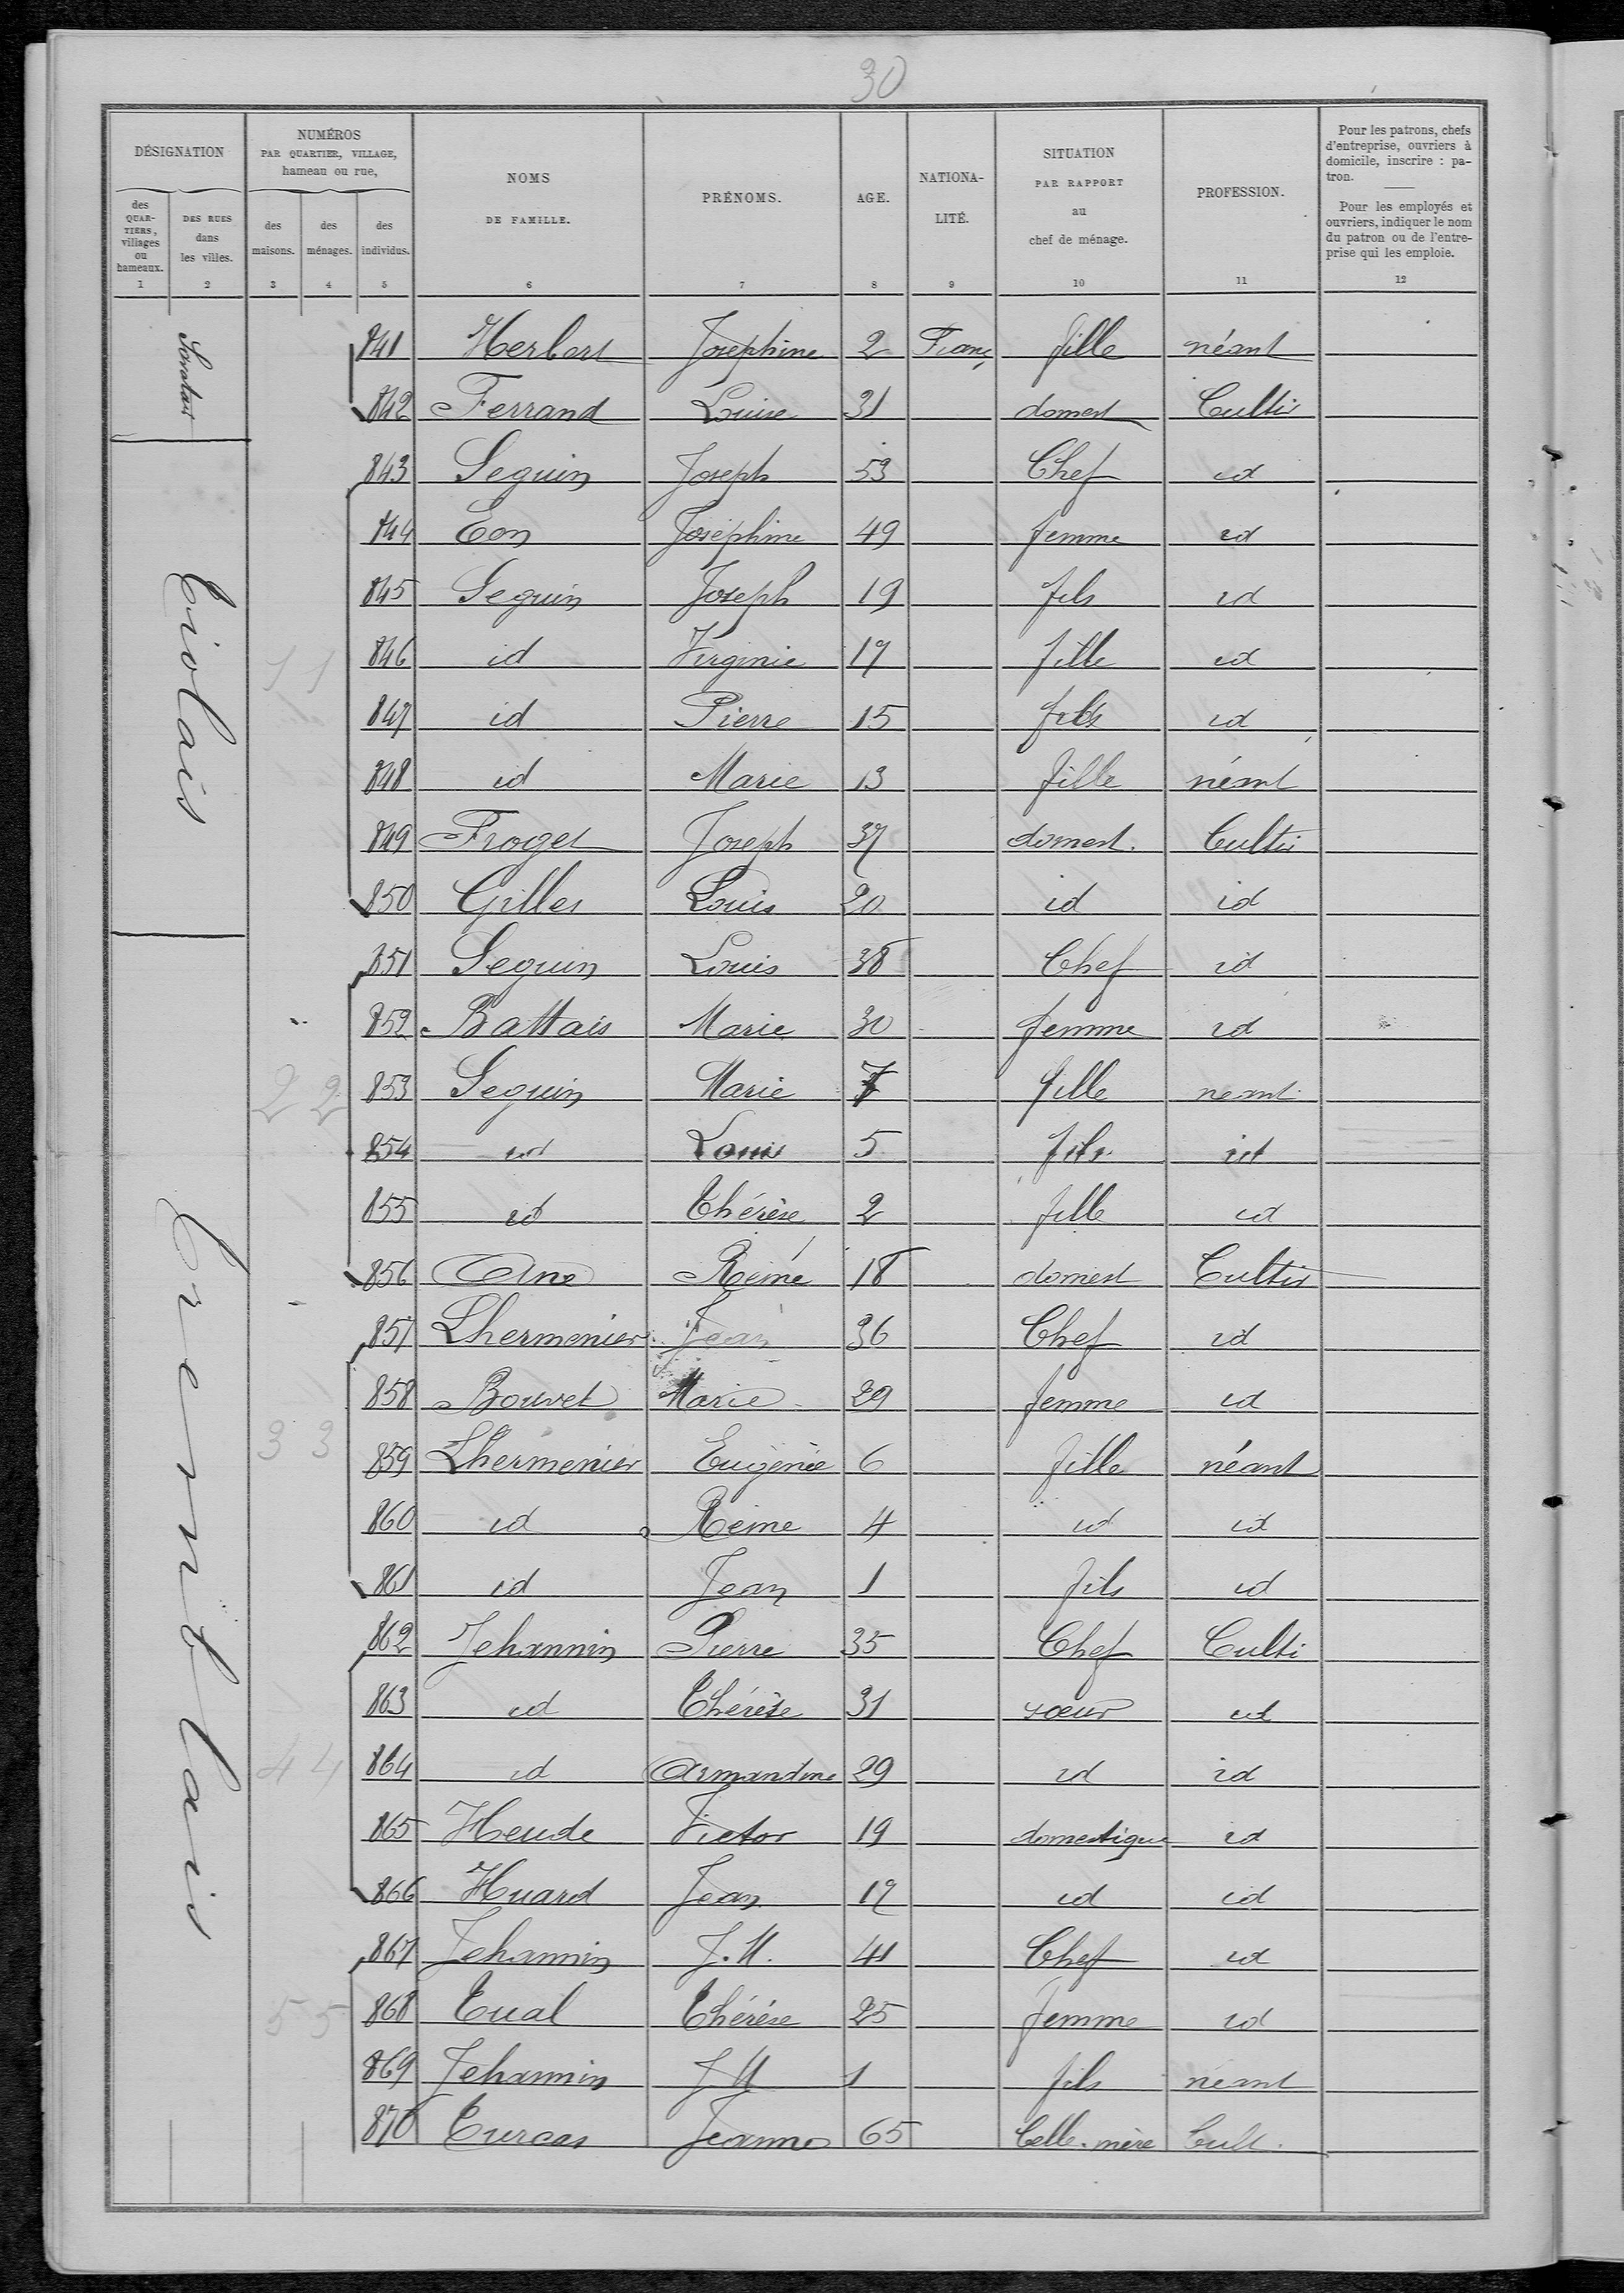 30
DÉSIGNATION
NUMÉROS
PAR QUARTIER, VILLAGE,
hameau ou rue,
NOMS
DE FAMILLE.
PRÉNOMS.
AGE.
NATIONA-
LITÉ.
SITUATION
PAR RAPPORT
au
chef de ménage.
PROFESSION.
Pour les patrons, chefs
d'entreprise, ouvriers à
domicile, inscrire : pa-
tron.
Pour les employés et
ouvriers, indiquer le nom
du patron ou de l'entre-
prise qui les emploie.
des
QUAR-
TIERS,
villages
ou
hameaux.
DES RUES
dans
les villes.
des
maisons.
des
ménages.
des
individus.
1 2 3 4 5 6 7 8 9 10 11 12
841 Herbert Josephine 2 Franç fille néant
842 Ferrand Louise 31 domest Cultiv
843 Seguin Joseph 53 Chef id
844 Eon Joséphine 49 femme id
845 Seguin Joseph 19 fils id
1 1 846 id Virginie 17 fille id
847 id Pierre 15 fils id
848 id Marie 13 fille néant
849 Froget Joseph 37 domest. Cultiv
850 Gilles Louis 20 id id
851 Seguin Louis 38 Chef id
852 Battais Marie 30 femme id
2 2 853 Seguin Marie 7 fille neant
854 id Louis 5 fils id
855 id Thérèse 2 fille id
856 Ane Réiné 18 domest Cultiv
857 Lhermenier Jean 36 Chef id
858 Bouvet Marie 29 femme id
3 3 859 Lhermenier Eugènie 6 fille néant
860 id Reine 4 id id
861 id Jean 1 fils id
862 Jehannin Pierre 35 Chef Culti
863 id Thérèse 31 soeur id
4 4 864 id Armandine 29 id id
865 Heude Victor 19 domestique id
866 Huard Jean 17 id id
867 Jehannin J. M. 41 Chef id
5 5 868 Tual Thérèse 25 femme id
869 Jehannin J M 1 fils néant
870 Jeanne 65 belle. mère Cult.
Tiolais